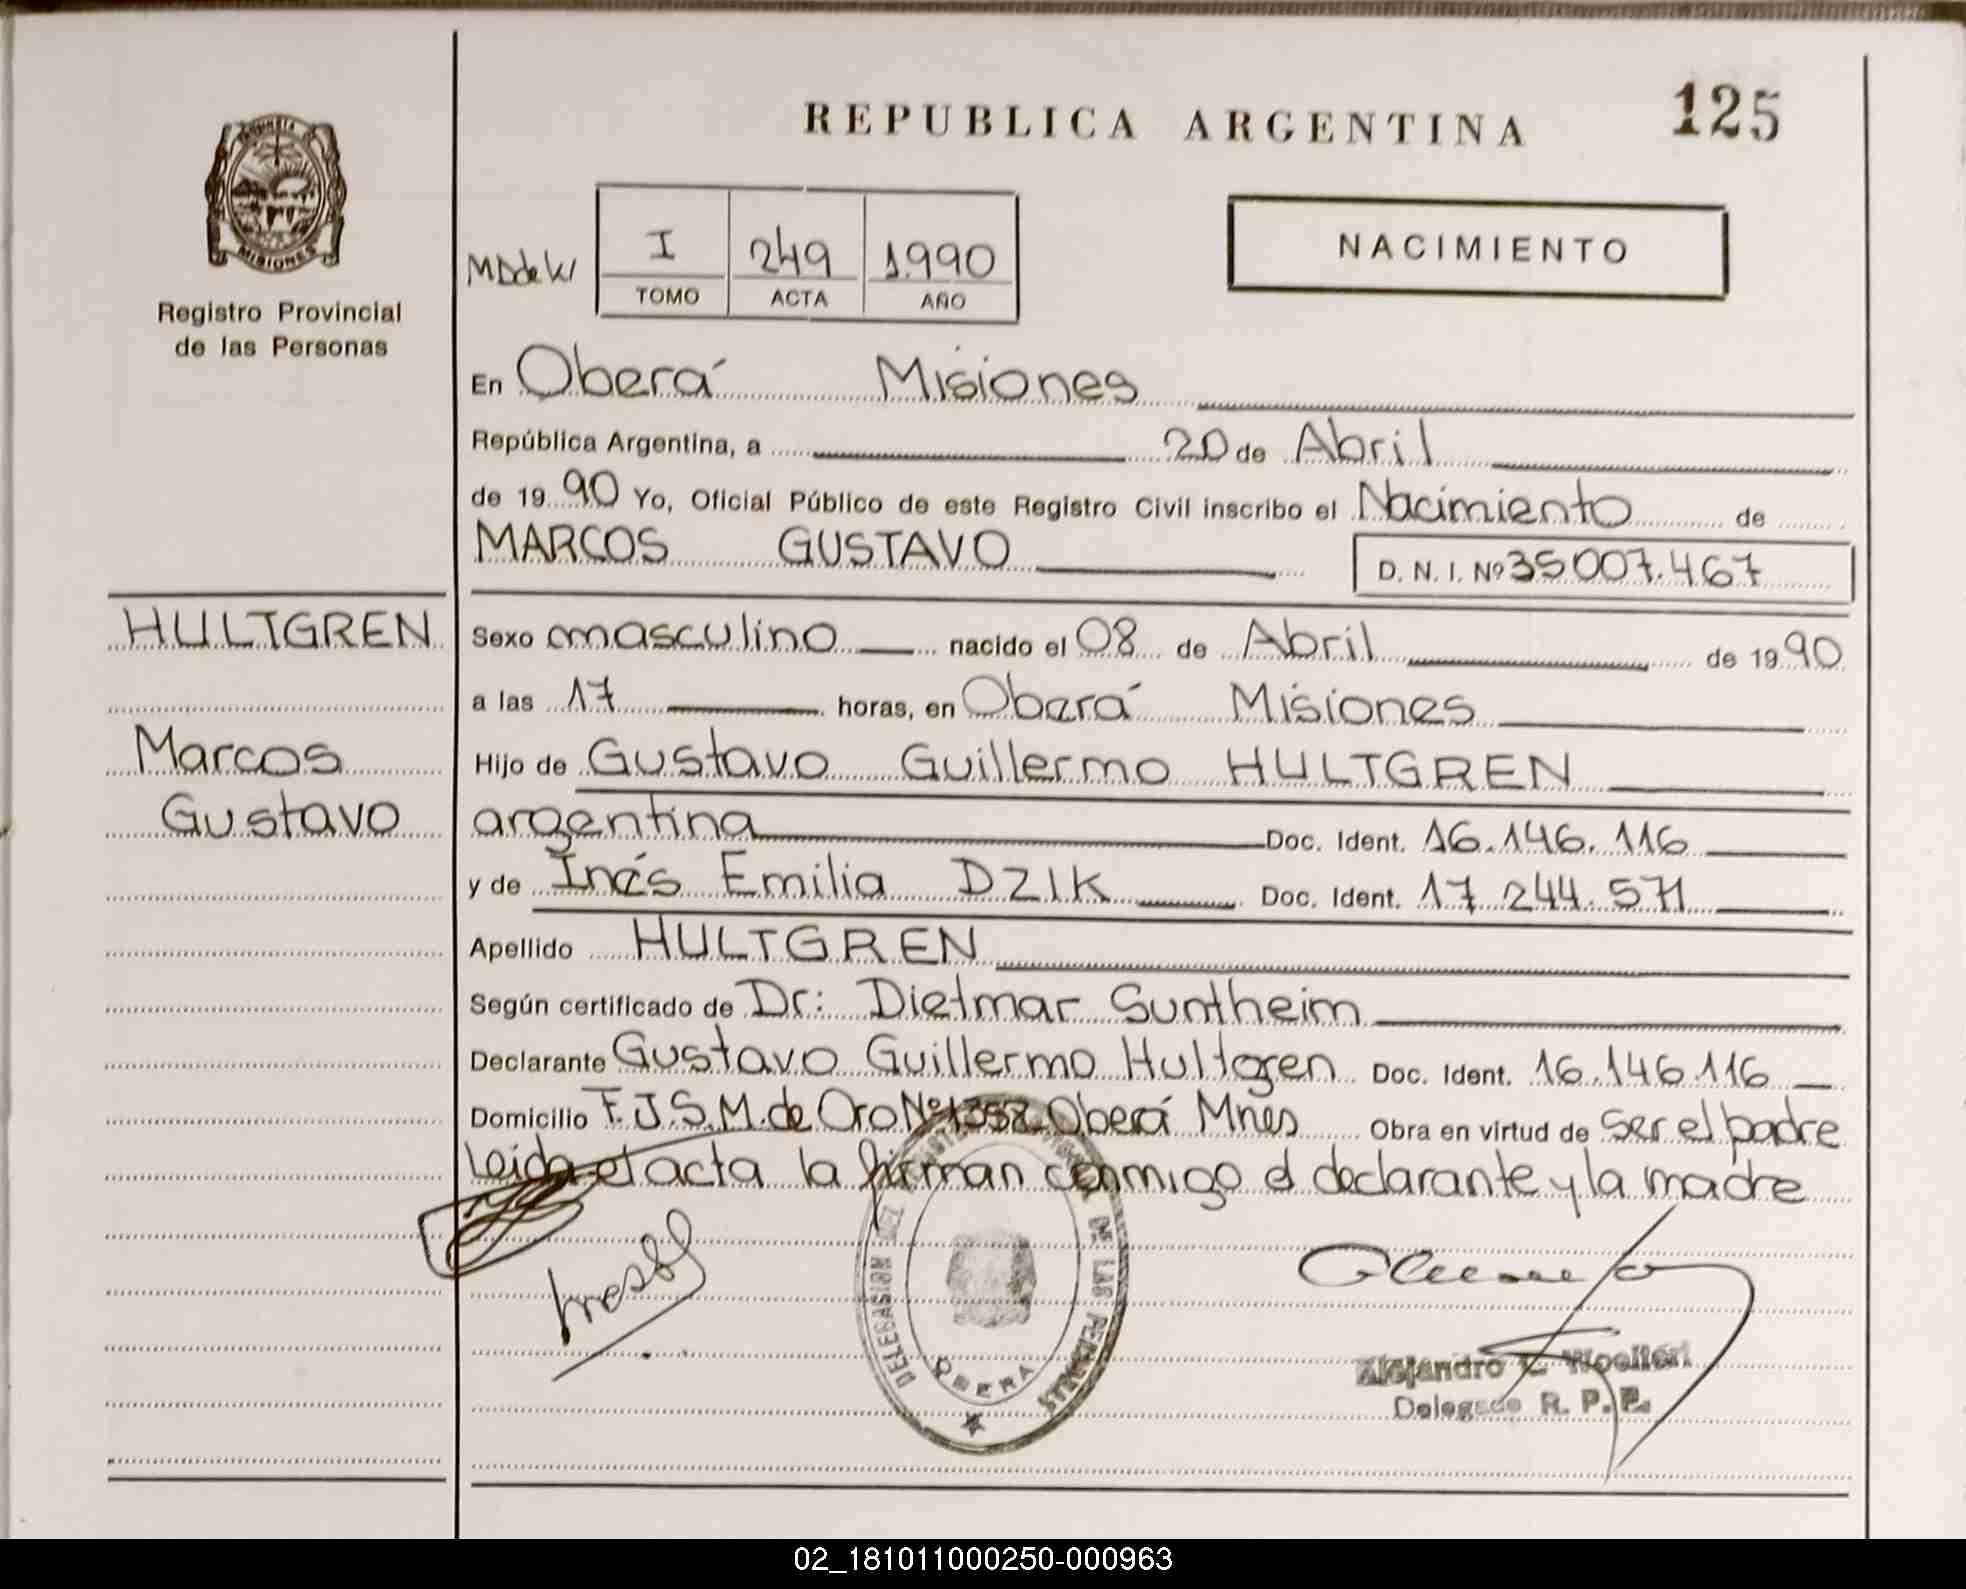 REPUBLICA ARGENTINA
125
PROVINCIA DE
MISIONES
Registro Provincial
de las Personas
I 249 1.990
TOMO ACTA AÑO
NACIMIENTO
En Oberá Misiones
República Argentina, a 20 de Abril
de 1990 Yo, Oficial Público de este Registro Civil inscribo el Nacimiento de
MARCOS GUSTAVO
D. N. I. Nº 35007.467
HULTGREN
Marcos
Gustavo
Sexo masculino nacido el 08 de Abril de 1990
a las 17 horas, en Oberá Misiones
Hijo de Gustavo Guillermo HULTGREN
argentina Doc. Ident. 16.146.116
y de Inés Emilia DZIK Doc. Ident. 17 244.571
Apellido HULTGREN
Según certificado de Dr: Dietmar Suntheim
Declarante Gustavo Guillermo Hultgren Doc. Ident. 16.146.116
Domicilio F.J.S.M. de Oro Nº 1358 Oberá Mnes Obra en virtud de ser el padre
Leida el acta la firman conmigo el declarante y la madre
DELEGASION DE LAS PERSONAS
OBERA
Alejandro
Delegado R. P. P.
02_181011000250-000963